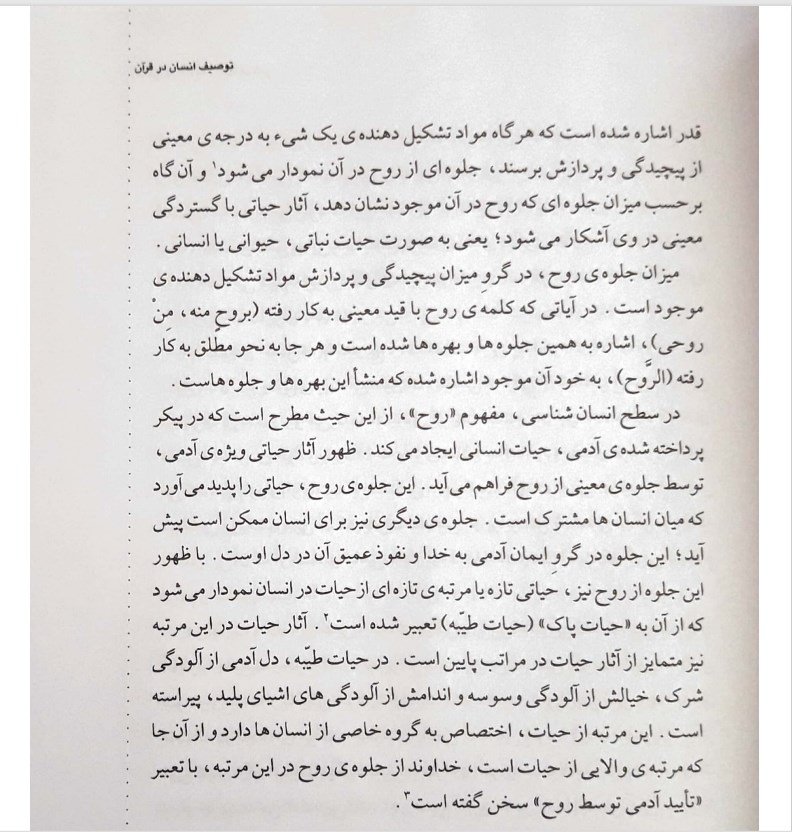 توصیف انسان در قرآن
قدر اشاره شده است که هرگاه مواد تشکیل دهنده ی یک شیء به درجه ی معینی
از پیچیدگی و پردازش برسند، جلوه ای از روح در آن نمودار می شود۱ و آن گاه
برحسب میزان جلوه ای که روح در آن موجود نشان دهد، آثار حیاتی با گستردگی
معینی در وی آشکار می شود؛ یعنی به صورت حیات نباتی، حیوانی یا انسانی.
میزان جلوه ی روح، در گروِ میزان پیچیدگی و پردازش مواد تشکیل دهنده ی
موجود است. در آیاتی که کلمه ی روح با قید معینی به کار رفته (بروحٍ منه، مِنْ
روحی)، اشاره به همین جلوه ها و بهره ها شده است و هر جا به نحو مطلق به کار
رفته (الرَّوح)، به خود آن موجود اشاره شده که منشأ این بهره ها و جلوه هاست.
در سطح انسان شناسی، مفهوم «روح»، از این حیث مطرح است که در پیکر
پرداخته شده ی آدمی، حیات انسانی ایجاد می کند. ظهور آثار حیاتی ویژه ی آدمی،
توسط جلوه ی معینی از روح فراهم می آید. این جلوه ی روح، حیاتی را پدید می آورد
که میان انسان ها مشترک است. جلوه ی دیگری نیز برای انسان ممکن است پیش
آید؛ این جلوه در گروِ ایمان آدمی به خدا و نفوذ عمیق آن در دل اوست. با ظهور
این جلوه از روح نیز، حیاتی تازه یا مرتبه ی تازه ای از حیات در انسان نمودار می شود
که از آن به «حیات پاک» (حیات طیّبه) تعبیر شده است۲. آثار حیات در این مرتبه
نیز متمایز از آثار حیات در مراتب پایین است. در حیات طیّبه، دل آدمی از آلودگی
شرک، خیالش از آلودگی وسوسه و اندامش از آلودگی های اشیای پلید، پیراسته
است. این مرتبه از حیات، اختصاص به گروه خاصی از انسان ها دارد و از آن جا
که مرتبه ی والایی از حیات است، خداوند از جلوه ی روح در این مرتبه، با تعبیر
«تأیید آدمی توسط روح» سخن گفته است۳.